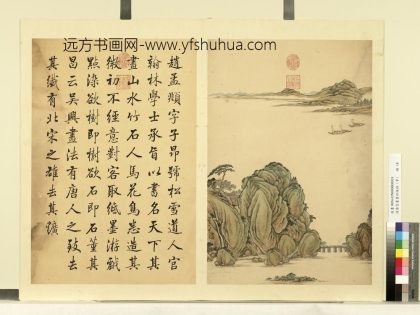 远方书画网-www.yfshuhua.com
趙孟頫字子昂號松雪道人官
翰林學士承旨以書名天下其
畫山水竹石人馬花鳥悉造其
微初不經意對客取紙墨游戲
點染欲樹即樹欲石即石董其
昌云吳興畫法有唐人之致去
其纖有北宋之雄去其獷